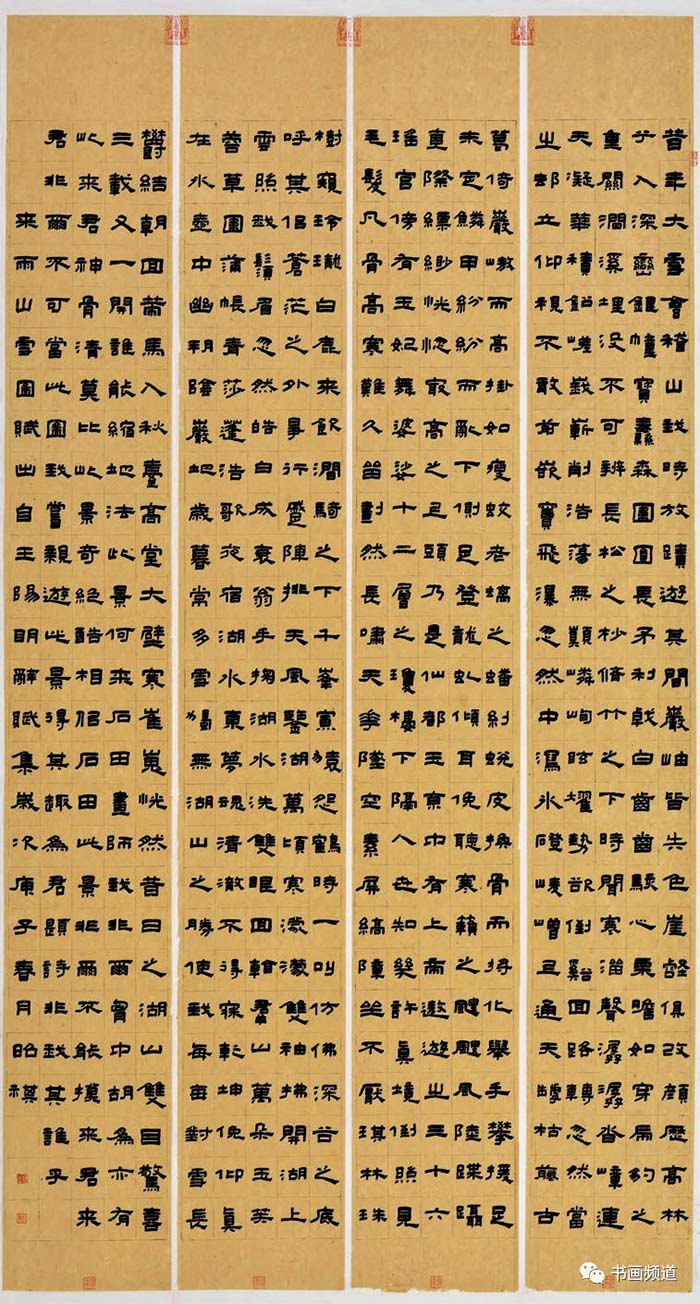 昔年大雪會稽山我時放蹟遊其間巖岫皆失色崖壑俱改顏歷高林
兮入深巒銀幢寶纛森圍圓長矛利戟白齒齒駭心栗膽如穿虎豹之
重關澗溪埋沒不可辨長松之杪脩竹之下時聞寒溜聲潺潺沓嶂連
天凝華積鉛嵯峨嶄削浩蕩無顛嶙峋眩耀勢欲倒谿回路轉忽然當
之却立仰視不敢前嵌竇飛瀑忽然中瀉冰磴崚嶒且通天罅枯藤古
葛倚巖嶔而高掛如瘦蛟老螭之蟠糾蛻皮換骨而將化舉手攀援足
未定鱗甲紛紛而亂下側足登龍虬傾耳俛聽寒籟之飀飀風陸蹀躡
直際縹緲恍惚最高之上頭乃是仙都玉京中有上帝遨遊之三十六
瑤宮傍有玉妃舞婆娑十二層之瓊樓下隔人世知幾許真境倒照見
毛髮凡骨高寒難久留劃然長嘯天花墜空素屏縞障坐不厭琪林珠
樹窺玲瓏白鹿來飲澗騎之下千峯寡猿怨鶴時一叫仿佛深谷之底
呼其侶蒼茫之外爭行蹙陣排天風鑒湖萬頃寒濛濛雙袖拂開湖上
雲照我鬚眉忽然皓白成衰翁手掬湖水洗雙眼回看羣山萬朵玉芙
蓉草團蒲帳青莎蓬浩歌夜宿湖水東夢魂清澈不得寐乾坤俛仰真
在水壺中幽朔陰巖地歲暮常多雪獨無湖山之勝使我每每對雪長
欝結朝回策馬入秋臺高堂大壁寒崔嵬恍然昔日之湖山雙目驚喜
三載又一開誰能縮地法此景何來石田畫師我非爾胸中胡為亦有
此來君神骨清莫比此景奇絕酷相侶石田此景非爾不能摸來君來
君非爾不可當此圖我嘗親遊此景得其趣為君題詩非我其誰乎
來雨山雪圖賦出自王陽明辭賦集歲次庚子春月昭祺
书画频道